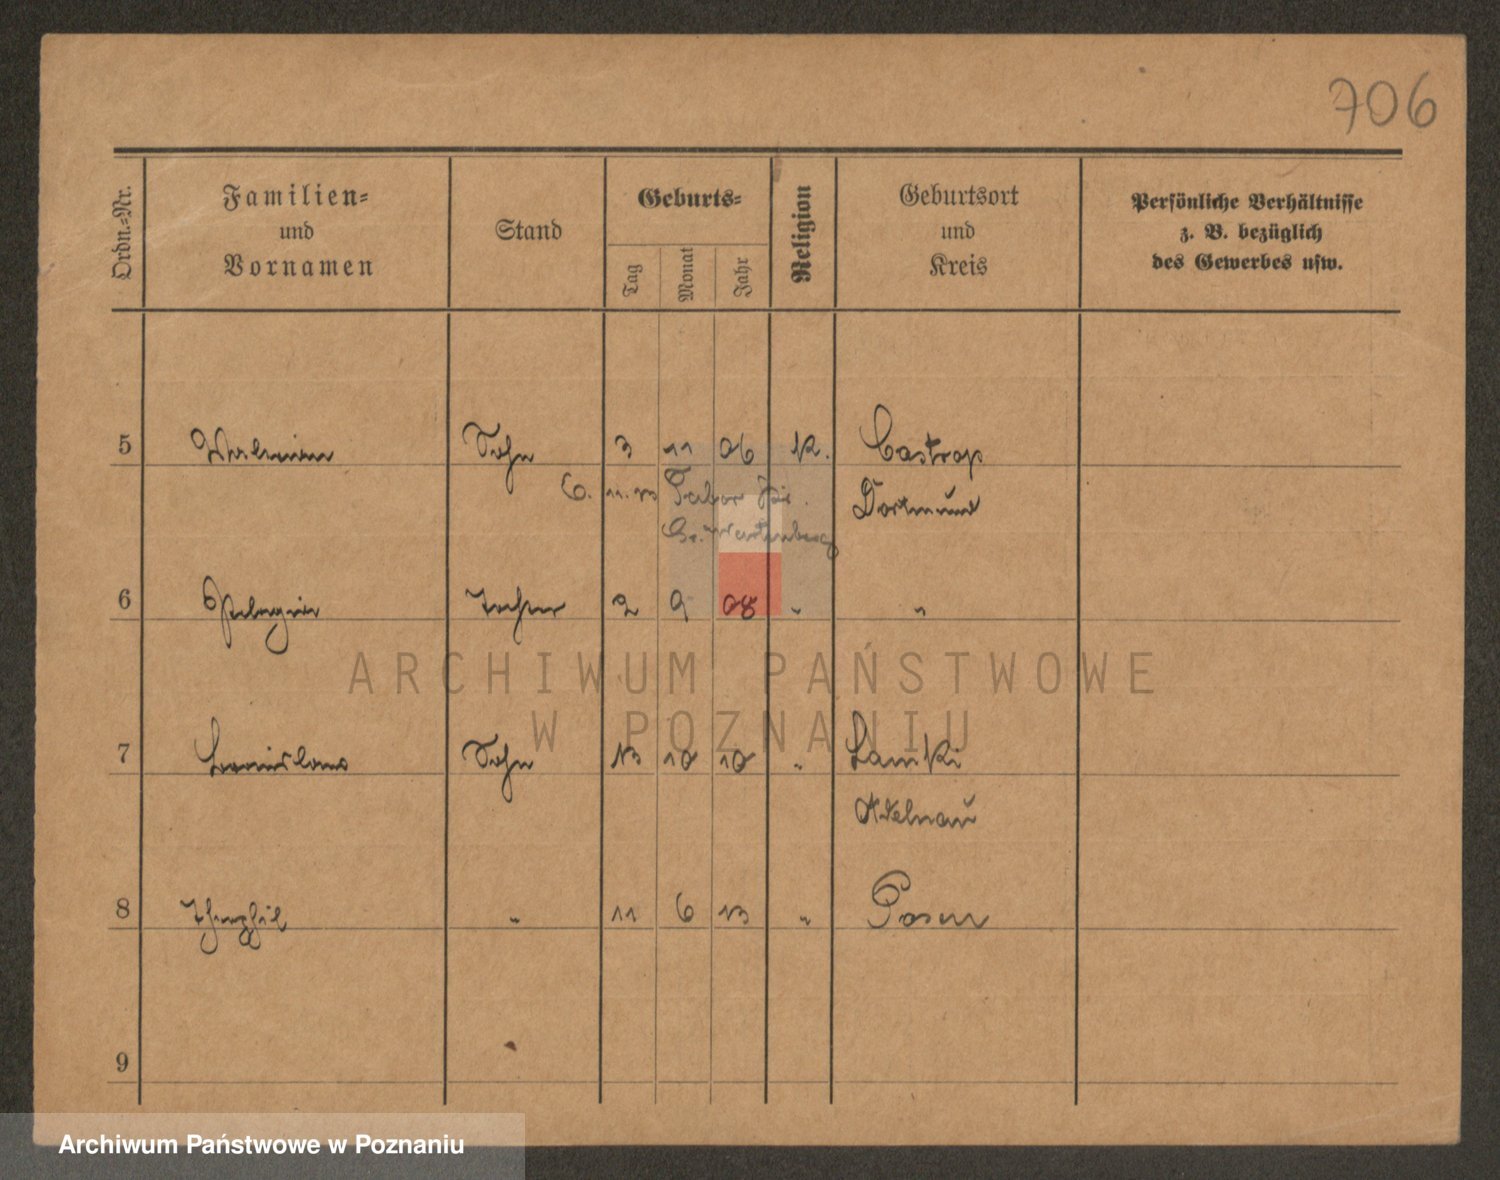 706
Ordn.-Nr. Familien- und Vornamen Stand Geburts- Tag Monat Jahr Religion Geburtsort und Kreis Persönliche Verhältnisse z. B. bezüglich des Gewerbes usw.
5 Sohn 3 11 06 K. Castrop
6. 11. 13 Tabor Kr. Dortmund
Gr. Wartenberg
6 Pelagia Tochter 2 9 08 " "
ARCHIWUM PAŃSTWOWE
W POZNANIU
7 Sohn 13 10 10 " Lamki
Adelnau
8 " 11 6 13 " Posen
9
Archiwum Państwowe w Poznaniu